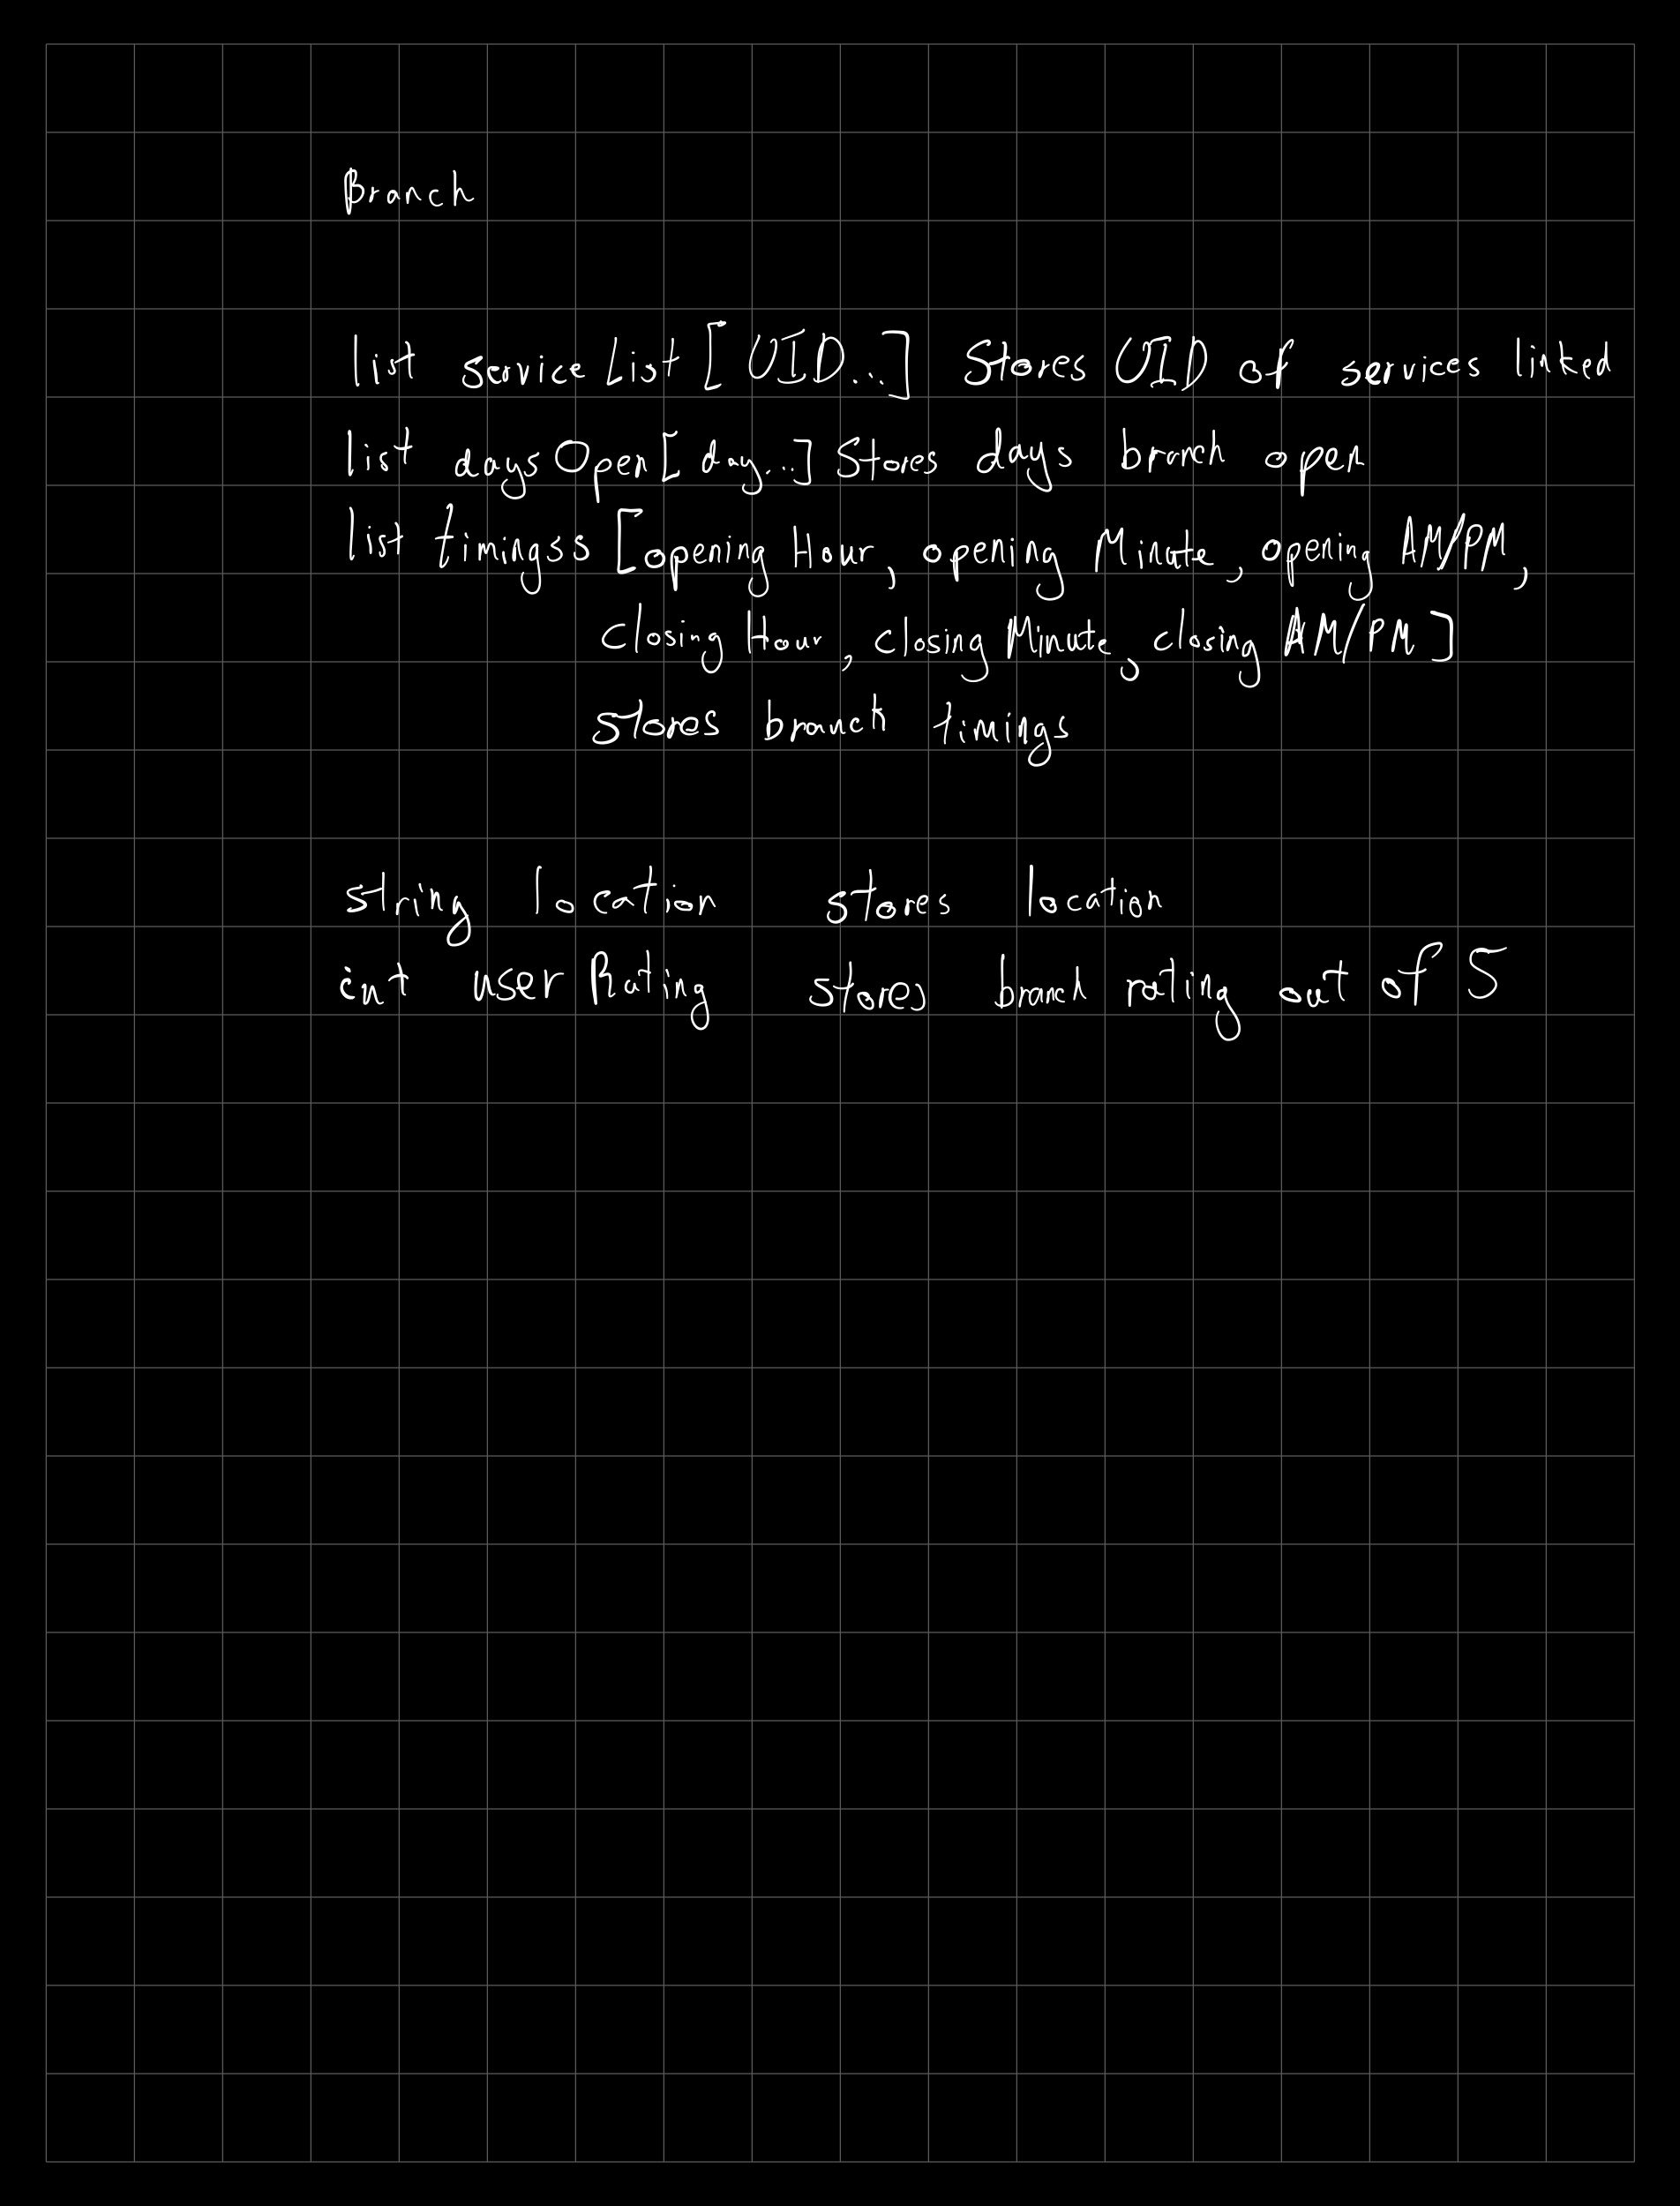 Branch
list serviceList [UID...] Stores UID of services linked
list daysOpen[day...] Stores days branch open
list timingss [opening Hour, opening Minute, opening AM/PM,
closing Hour, closing Minute, closing AM/PM]
stores branch timings
string location stores location
int userRating stores branch rating out of 5